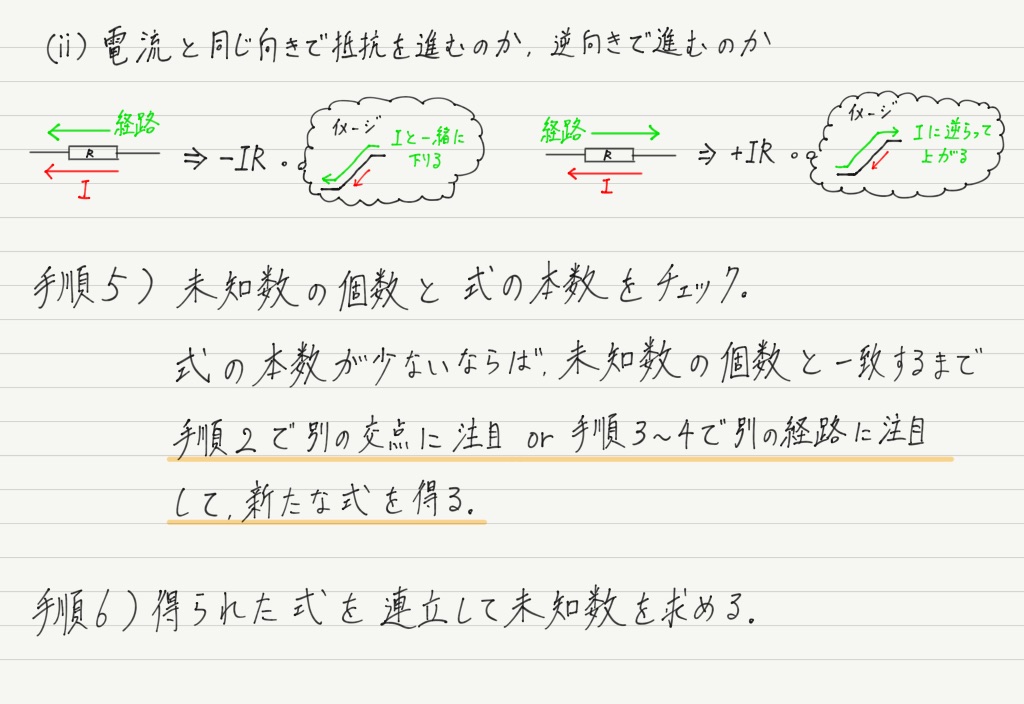 (ii) 電流と同じ向きで抵抗を進むのか, 逆向きで進むのか
経路
R
I
⇒ -IR
イメージ
Iと一緒に
下りる
経路
R
I
⇒ +IR
イメージ
Iに逆らって
上がる
手順5) 未知数の個数と式の本数をチェック.
式の本数が少ないならば, 未知数の個数と一致するまで
手順2で別の交点に注目 or 手順3~4で別の経路に注目
して, 新たな式を得る.
手順6) 得られた式を連立して未知数を求める.